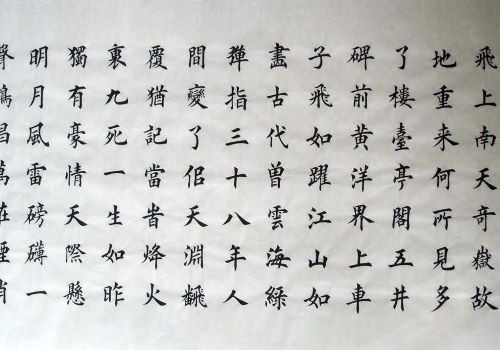 飛上南天奇嶽故
地重来何所見多
了樓臺亭閣五井
碑前黄洋界上車
子飛如躍江山如
畫古代曾雲海綠
彈指三十八年人
間變了佀天淵飜
覆猶記當旹烽火
裏九死一生如昨
獨有豪情天際懸
明月風雷磅礴一